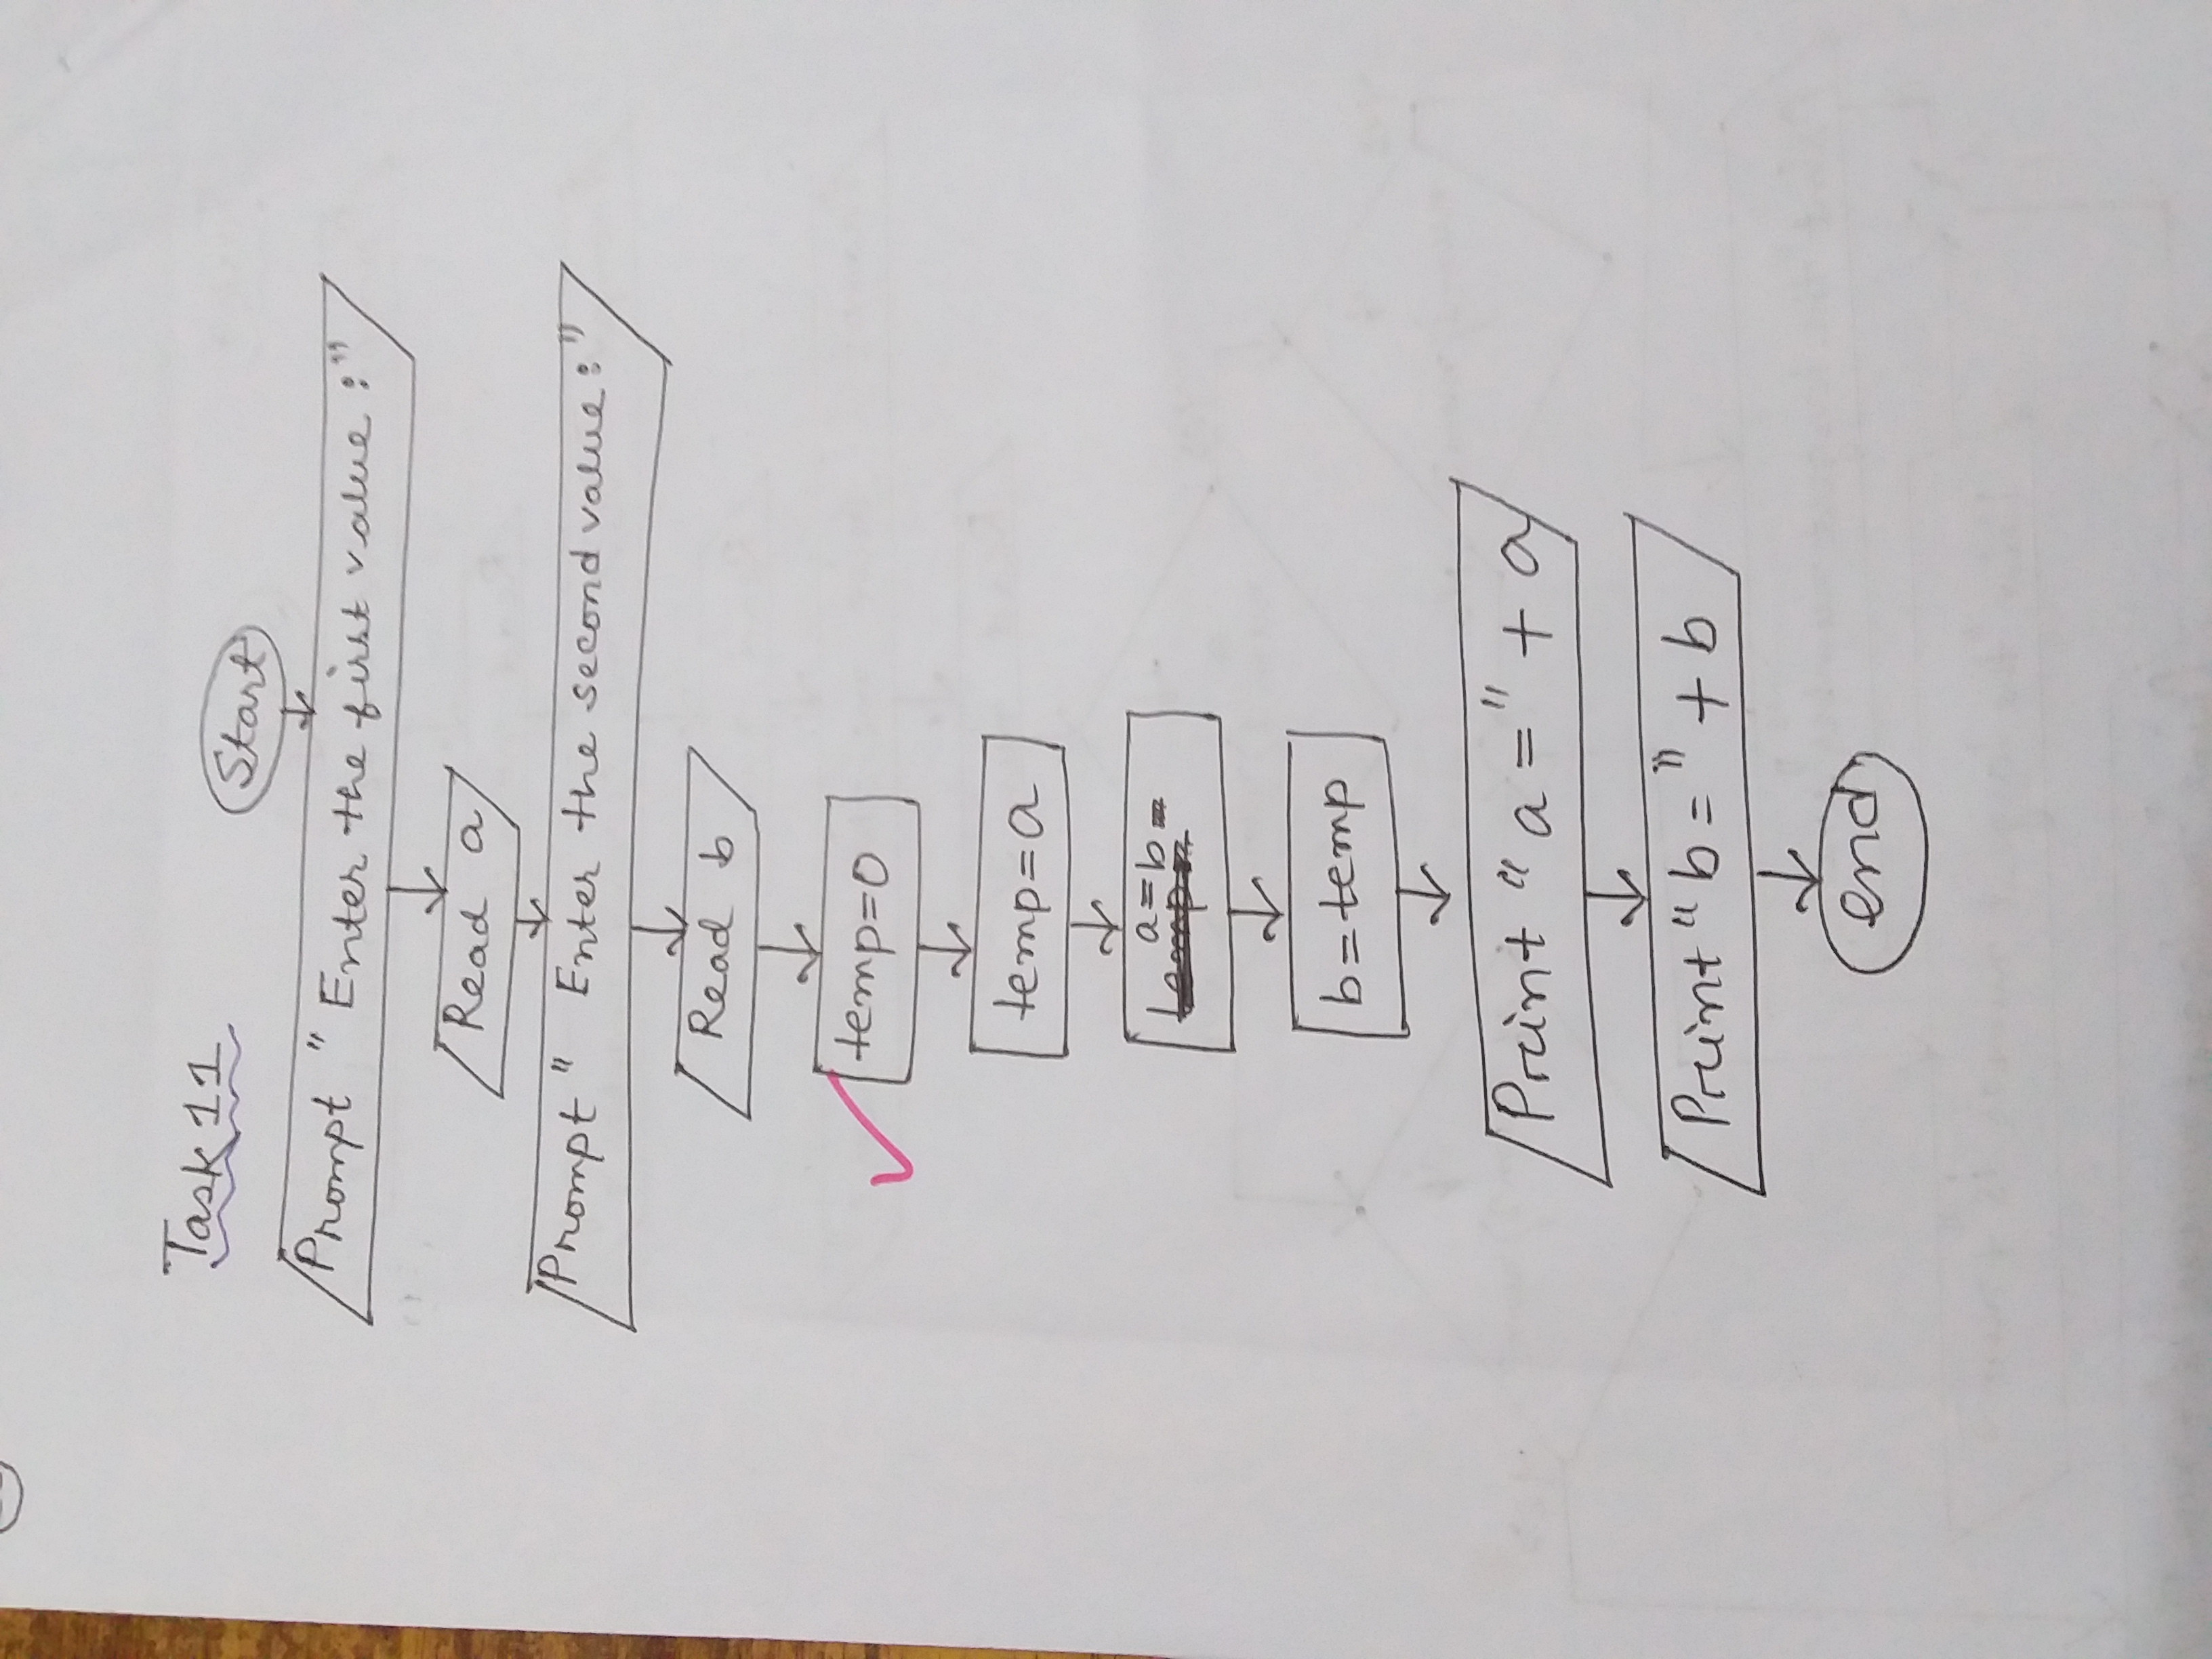 Task 11
Start
Prompt " Enter the first value :"
Read a
Prompt " Enter the second value :"
Read b
temp=0
temp=a
a=b
b=temp
Print " a = " + a
Print " b = " + b
end